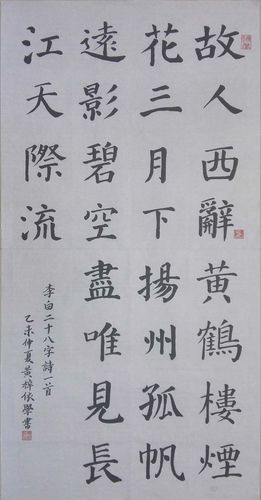 故人西辭黃鶴樓煙
花三月下揚州孤帆
遠影碧空盡唯見長
江天際流
李白二十八字詩一首
乙未仲夏黃梓依學書